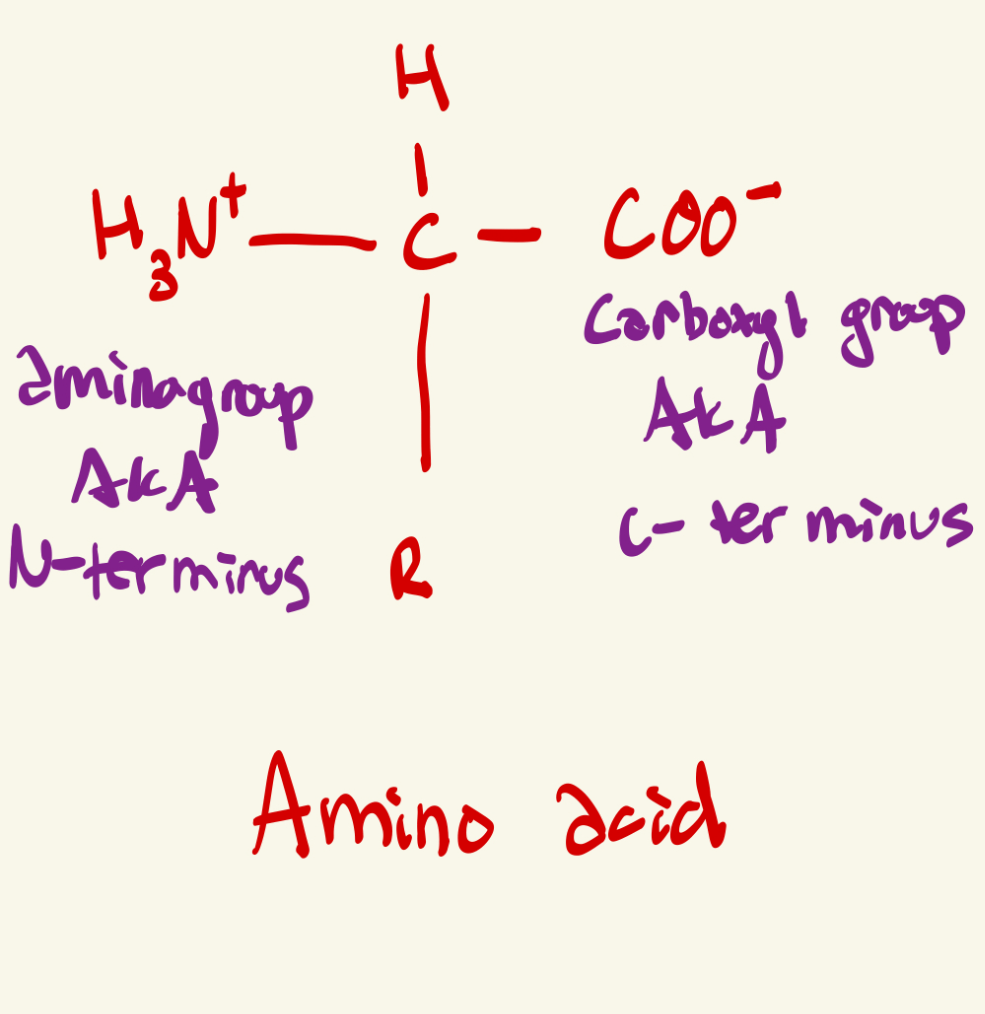 H
H₃N⁺ — C — COO⁻
Carboxyl group
aminogroup
AKA
AKA
C-terminus
N-terminus
R
Amino acid